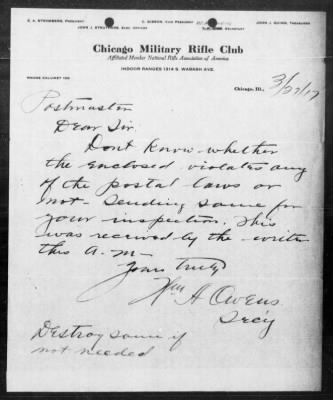 E. A. STROMBERG, PRESIDENT
JOHN J. STRUTHERS, EXEC. OFFICER
C. GIBSON, VICE PRESIDENT
SECRETARY
JOHN J. QUINN, TREASURER
Chicago Military Rifle Club
Affiliated Member National Rifle Association of America
INDOOR RANGES 1314 S. WABASH AVE.
PHONE CALUMET
Chicago, Ill., 3/27/17
Postmaster
Dear Sir.
Dont Know whether
the enclosed violates any
of the postal laws or
not - Sending same for
your inspection. This
was received by the writer
this A.M-
Yours truly
Wm A Owens
Sec'y
Destroy same if
not needed